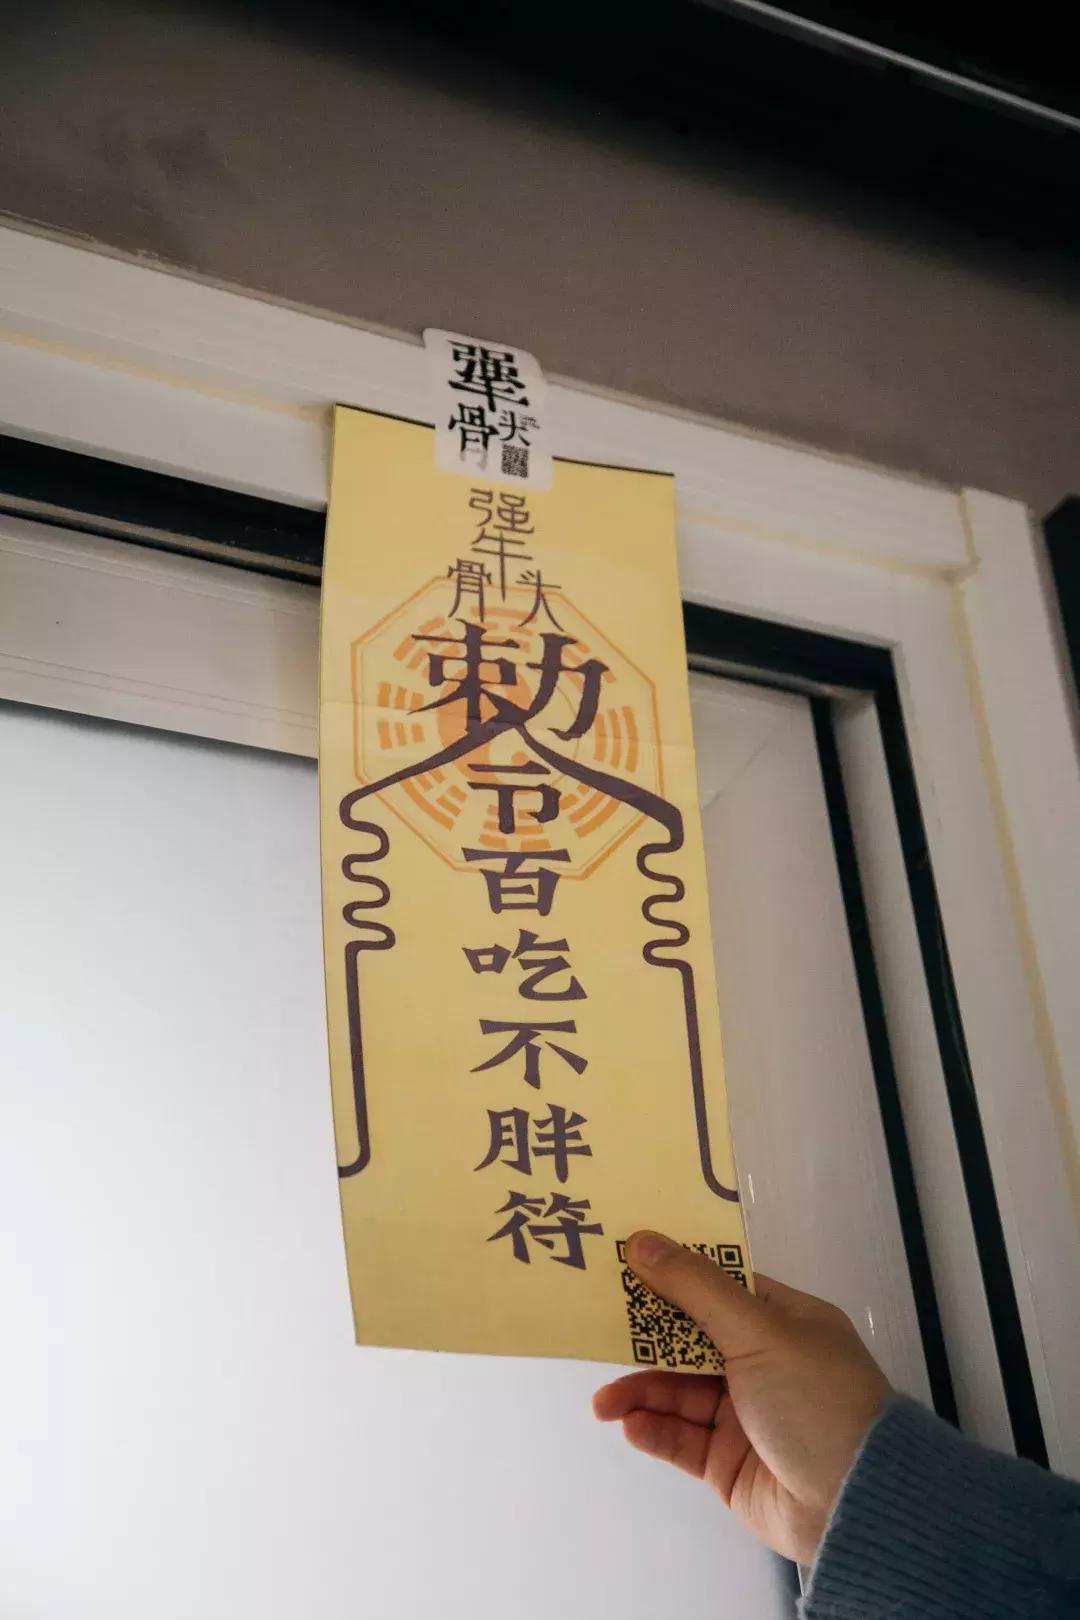 强牛
骨头
强牛
骨头
敕
令
百
吃
不
胖
符